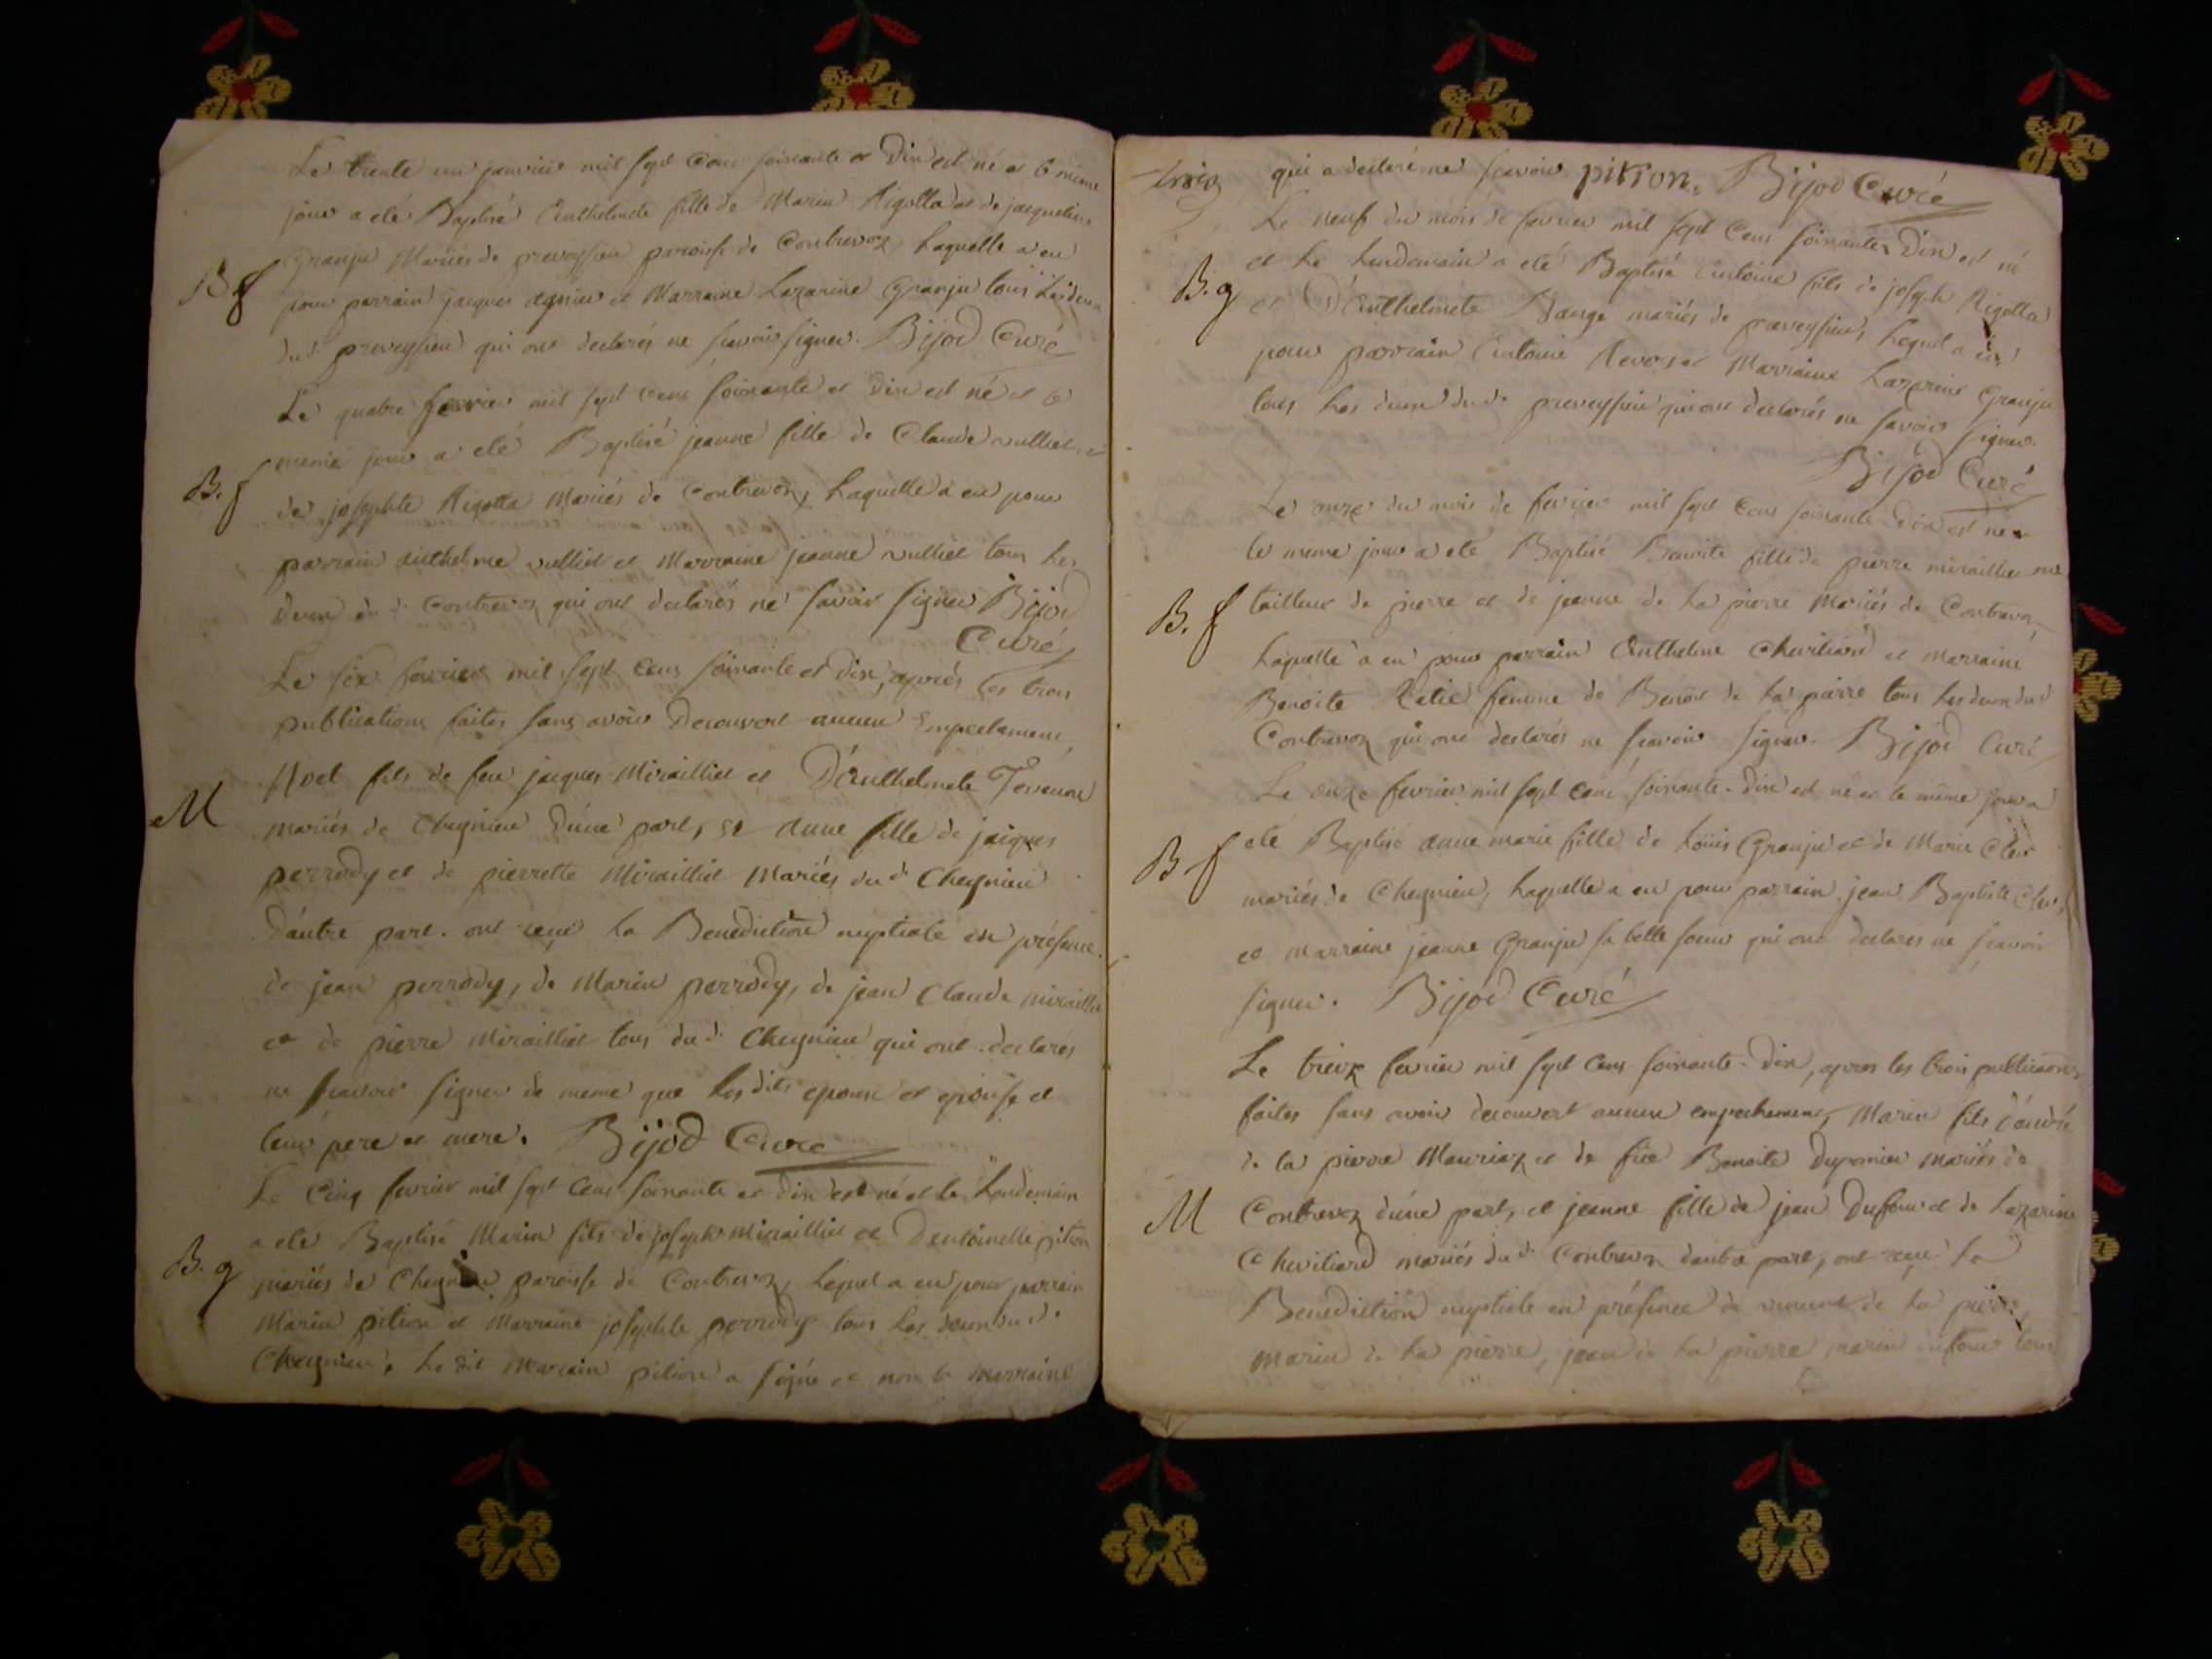 Le trente un janvier mil sept cens soixante et dix est né et le même
jour a eté Baptisé Anthelmete fille de Marin Rigolla et de jacqueline
B f
granju Mariés de preveyssieu paroisse de Contrevoz, Laquelle a eu
pour parrain jacques agniu et Marraine Lazarine Granju tous Les deux
dud. preveyssieu qui ont declarés ne sçavoir signer. Bijod Curé
Le quatre fevrier mil sept cens soixante et dix est né et le
même jour a eté Baptisé jeanne fille de Claude vulliet et
B. f
de josephte Rigolla Mariés de Contrevoz, Laquelle a eu pour
parrain anthelme vulliet et Marraine jeanne vulliet tous Les
deux du d. Contrevoz qui ont declarés ne savoir signer Bijod
Curé
Le six fevrier mil sept cens soixante et dix, après les trois
publications faites sans avoir decouvert aucun Empechement
M
Noel fils de feu jacques Miraillet et D'Anthelmete
mariés de Cheynieu d'une part, et anne fille de jacques
perrody et de pierrette Miraillet Mariés du d. Cheynieu
d'autre part. ont reçu La Benediction nuptiale en présence
de jean perrody, de Marin perrody, de jean Claude miraillet
et de pierre Miraillet tous du d. Cheynieu qui ont declarés
ne sçavoir signer de meme que Les dits epoux et epouse et
leur pere et mere. Bijod Curé
Le Cinq fevrier mil sept cens soixante et dix est né et le Landemain
a eté Baptisé Marin fils de joseph Miraillet et D'entoinette pition
B. g
mariés de Cheynieu paroisse de Contrevoz, Lequel a eu pour parrain
Marin pition et Marraine josephte perrody tous Les deux du d.
Cheynieu, Le dit parrain pition a signé et non la marraine
trois qui a declaré ne sçavoir pition. Bijod Curé
Le neuf du mois de fevrier mil sept Cens soixante dix est né
et Le Lendemain a eté Baptisé Antoine fils de joseph Rigolla
B. g
et D'anthelmete Bauge mariés de preveyssieu, Lequel a eu
pour parrain Antoine et Marraine Lazarine Granju
tous Les deux du d. preveyssieu qui ont declarés ne savoir signer.
Bijod Curé
Le onze du mois de fevrier mil sept Cens soixante dix est né et
le même jour a eté Baptisé Benoite fille de pierre miraillet
B. f
tailleur de pierre et de jeanne de La pierre Mariés de Contrevoz
Laquelle a eu pour parrain Anthelme Cheviliard et marraine
Benoite femme de Benoit de La pierre tous Les deux du d
Contrevoz qui ont declarés ne sçavoir signer. Bijod Curé
Le onze fevrier mil sept cens soixante-dix est né et le même jour a
B f
eté Baptisé anne marie fille de Loüis Granju et de Marie
mariés de Cheynieu, Laquelle a eu pour parrain jean Baptiste
et marraine jeanne Granju sa belle soeur qui ont declarés ne sçavoir
signer. Bijod Curé
Le treize fevrier mil sept Cens soixante-dix, apres les trois publications
faites sans avoir decouvert aucun empechement, Marin fils d'andré
de la pierre et de Benoite mariés de
M
Contrevoz d'une part, et jeanne fille de jean Dufour et de Lazarine
Cheviliard mariés du d. Contrevoz d'autre part, ont reçu La
Benediction nuptiale en présence de de La pierre,
Marin de La pierre, jean de La pierre marin dufour tous